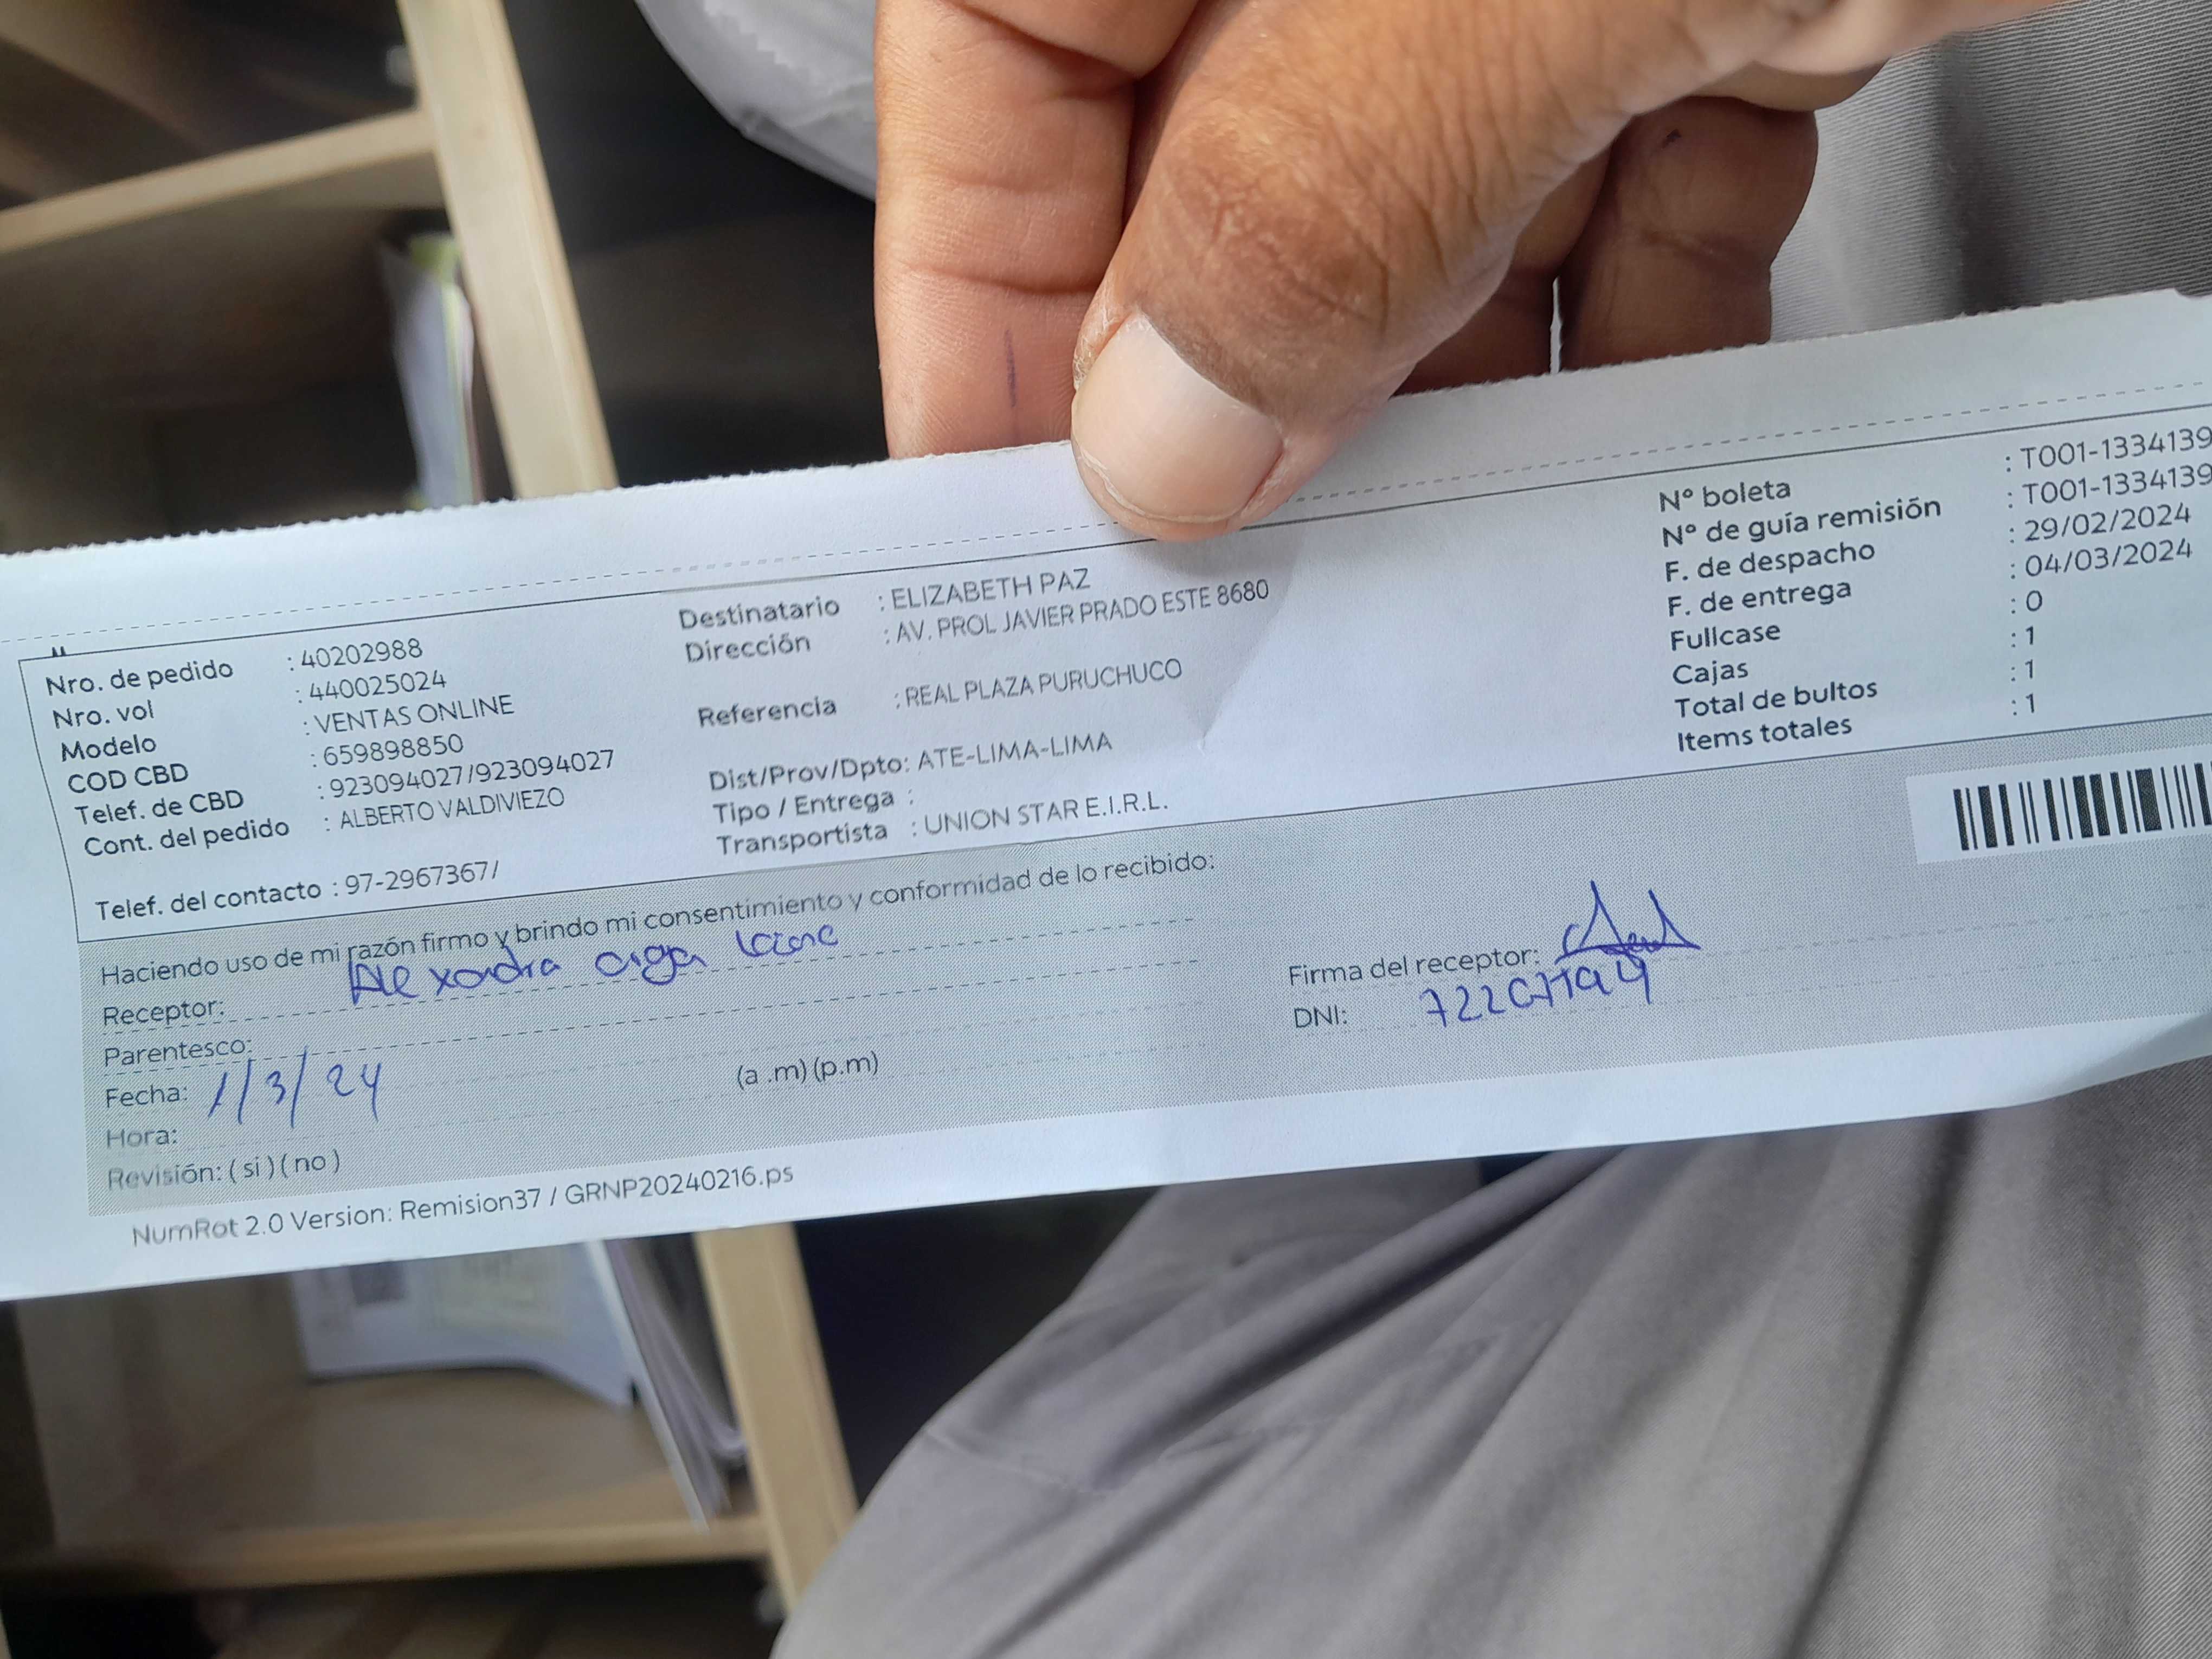 Nro. de pedido : 40202988
Nro. vol : 440025024
Modelo : VENTAS ONLINE
COD CBD : 659898850
Telef. de CBD : 923094027/923094027
Cont. del pedido : ALBERTO VALDIVIEZO
Telef. del contacto : 97-2967367/
Destinatario : ELIZABETH PAZ
Dirección : AV. PROL JAVIER PRADO ESTE 8680
Referencia : REAL PLAZA PURUCHUCO
Dist/Prov/Dpto: ATE-LIMA-LIMA
Tipo / Entrega :
Transportista : UNION STAR E.I.R.L.
Nº boleta : T001-1334139
Nº de guía remisión : T001-1334139
F. de despacho : 29/02/2024
F. de entrega : 04/03/2024
Fullcase : 0
Cajas : 1
Total de bultos : 1
Items totales : 1
Haciendo uso de mi razón firmo y brindo mi consentimiento y conformidad de lo recibido:
Receptor: Alexandra
Parentesco:
Fecha: 1/3/24
Hora: (a .m) (p.m)
Revisión: ( si ) ( no )
Firma del receptor:
DNI:
NumRot 2.0 Version: Remision37 / GRNP20240216.ps